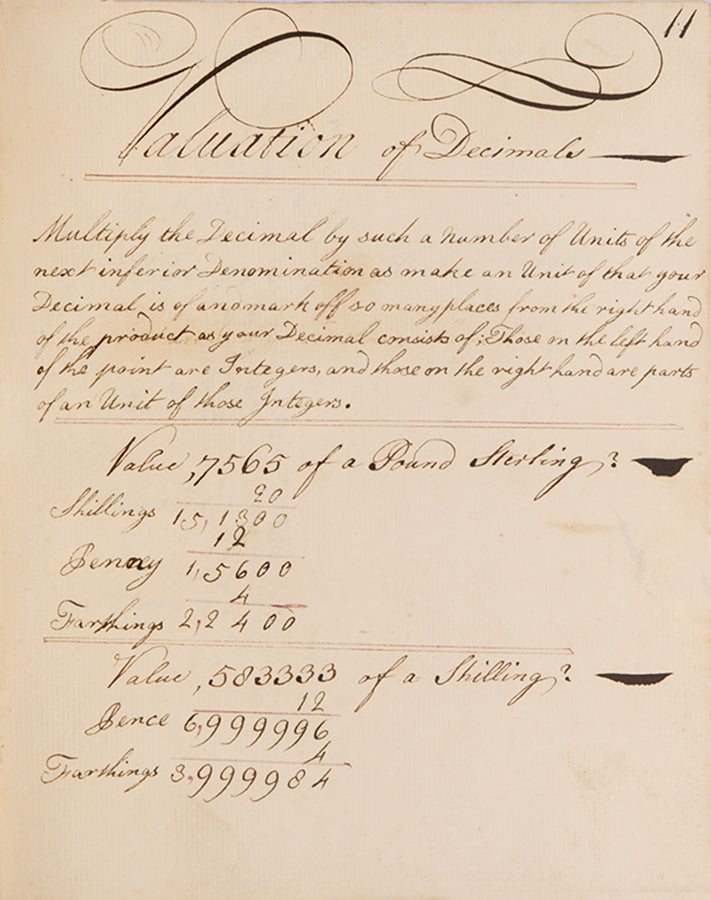 11
Valuation of Decimals
Multiply the Decimal by such a Number of Units of the
next inferior Denomination as make an Unit of that your
Decimal is of and mark off so many places from the right hand
of the product as your Decimal consists of; Those on the left hand
of the point are Integers, and those on the right hand are parts
of an Unit of those Integers.
Value ,7565 of a Pound Sterling?
20
Shillings 15,1300
12
Penny 1,5600
4
Farthings 2,2400
Value ,583333 of a Shilling?
12
Pence 6,999996
4
Farthings 3,999984